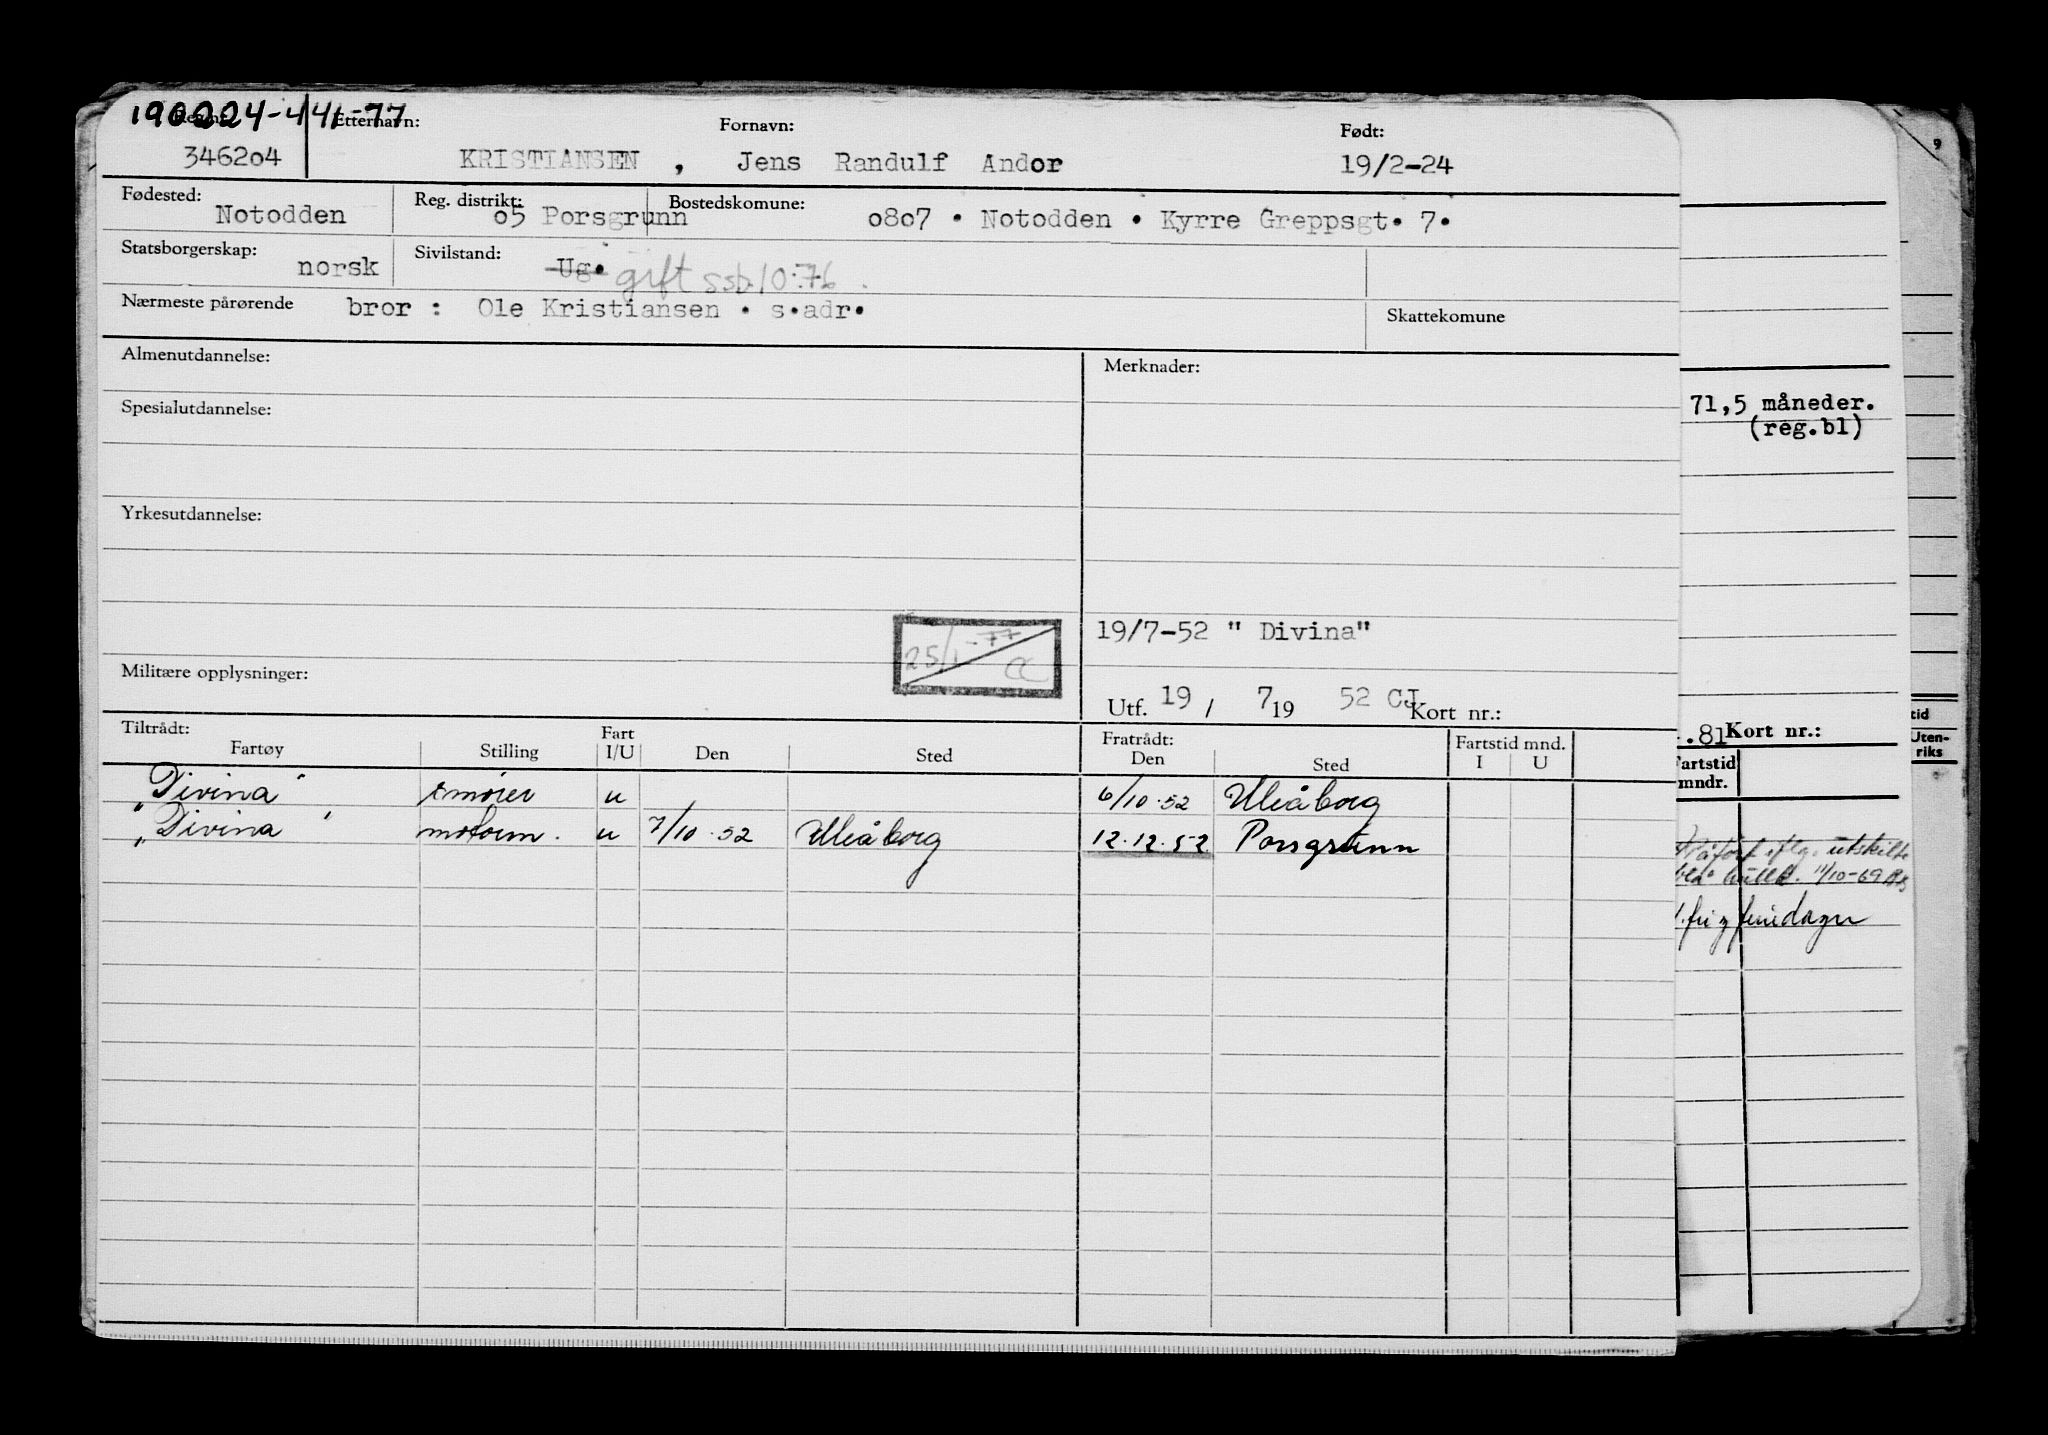 190224-441-77
Reg.nr. Etternavn: Fornavn: Født:
346204 KRISTIANSEN , Jens Randulf Andor 19/2-24
Fødested: Reg. distrikt: Bostedskomune:
Notodden o5 Porsgrunn o8o7 • Notodden • Kyrre Greppsgt• 7•
Statsborgerskap: norsk Sivilstand: Ug• gift ssb.10.76
Nærmeste pårørende bror : Ole Kristiansen • s•adr• Skattekomune
Almenutdannelse: Merknader:
Spesialutdannelse:
71,5 måneder.
(reg.bl)
Yrkesutdannelse:
19/7-52 " Divina"
25/1-77
Militære opplysninger:
Utf. 19 / 7 19 52 CJ Kort nr.:
.81 Kort nr.:
Tiltrådt: Fratrådt:
Fartøy Stilling Fart I/U Den Sted Den Sted Fartstid mnd. I U
Fartstid mndr.
tid
Uten-
riks
"Divina" smører u 6/10.52 Uleåborg
"Divina" motorm. u 7/10.52 Uleåborg 12.12.52 Porsgrunn
utskilte
11/10-69
9